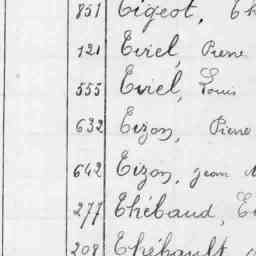 851 Tigeot,
121 Triel, Pierre
555 Triel, Louis
632 Tizon, Pierre
642 Tizon, Jean
277 Thébaud,
208 Thébault,